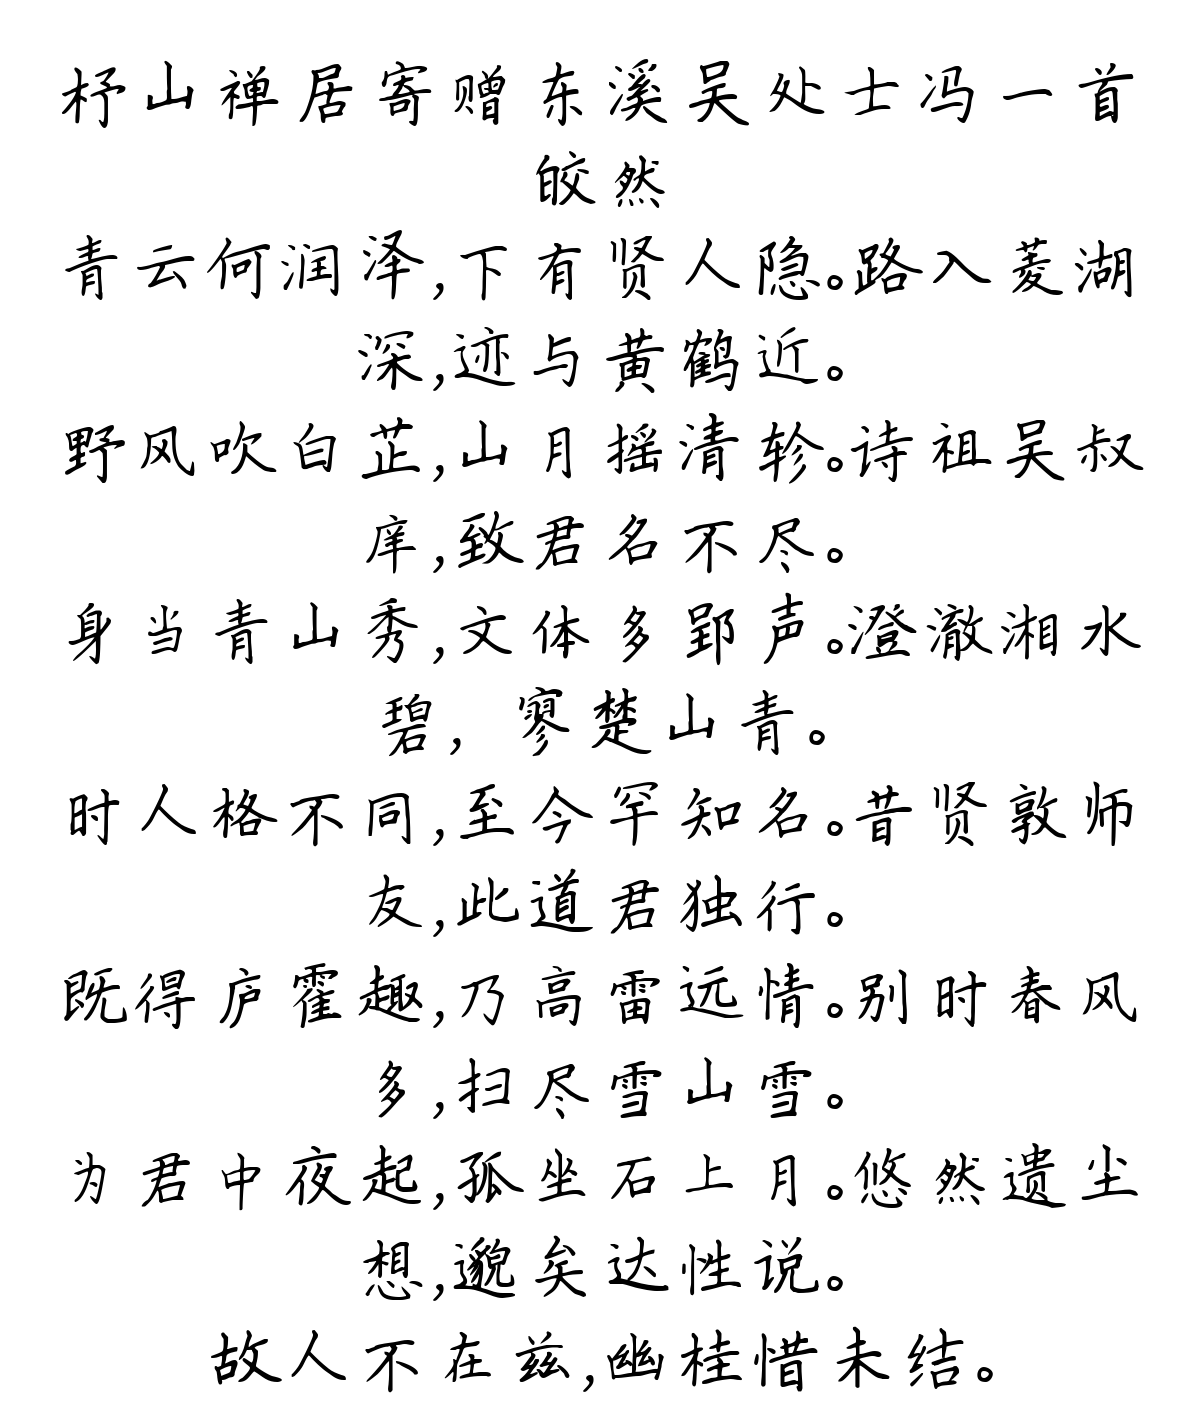 杼山禅居寄赠东溪吴处士冯一首
皎然
青云何润泽,下有贤人隐。路入菱湖
深,迹与黄鹤近。
野风吹白芷,山月摇清轸。诗祖吴叔
庠,致君名不尽。
身当青山秀,文体多郢声。澄澈湘水
碧，寥楚山青。
时人格不同,至今罕知名。昔贤敦师
友,此道君独行。
既得庐霍趣,乃高雷远情。别时春风
多,扫尽雪山雪。
为君中夜起,孤坐石上月。悠然遗尘
想,邈矣达性说。
故人不在兹,幽桂惜未结。